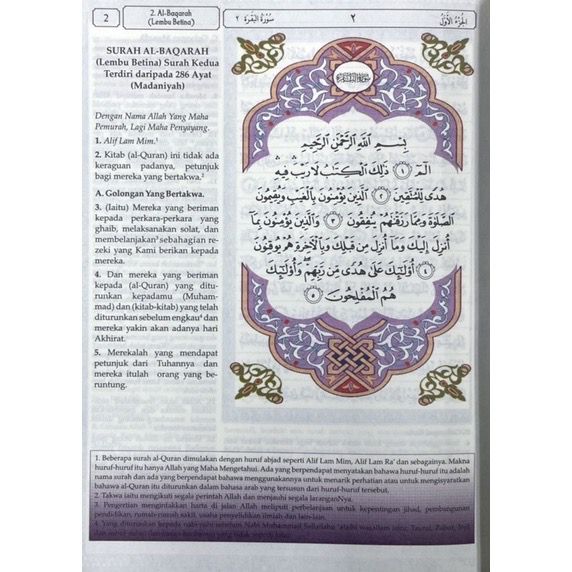 2
2. Al-Baqarah
(Lembu Betina)
سُورَةُ البَقَرَة ٢
٢
الجُزءُ الأَوَّلُ
SURAH AL-BAQARAH
(Lembu Betina) Surah Kedua
Terdiri daripada 286 Ayat
(Madaniyah)
Dengan Nama Allah Yang Maha
Pemurah, Lagi Maha Penyayang.
1. Alif Lam Mim.¹
2. Kitab (al-Quran) ini tidak ada
keraguan padanya, petunjuk
bagi mereka yang bertakwa.²
A. Golongan Yang Bertakwa.
3. (Iaitu) Mereka yang beriman
kepada perkara-perkara yang
ghaib, melaksanakan solat, dan
membelanjakan³ sebahagian re-
zeki yang Kami berikan kepada
mereka.
4. Dan mereka yang beriman
kepada (al-Quran) yang ditu-
runkan kepadamu (Muham-
mad) dan (kitab-kitab) yang telah
diturunkan sebelum engkau⁴ dan
mereka yakin akan adanya hari
Akhirat.
5. Merekalah yang mendapat
petunjuk dari Tuhannya dan
mereka itulah orang yang be-
runtung.
سُورَةُ البَقَرَةِ
بِسْمِ اللَّهِ الرَّحْمَٰنِ الرَّحِيمِ
الٓمٓ ١ ذَٰلِكَ الْكِتَابُ لَا رَيْبَ ۛ فِيهِ ۛ
هُدًى لِّلْمُتَّقِينَ ٢ الَّذِينَ يُؤْمِنُونَ بِالْغَيْبِ وَيُقِيمُونَ
الصَّلَوٰةَ وَمِمَّا رَزَقْنَٰهُمْ يُنفِقُونَ ٣ وَالَّذِينَ يُؤْمِنُونَ بِمَآ
أُنزِلَ إِلَيْكَ وَمَآ أُنزِلَ مِن قَبْلِكَ وَبِالْآخِرَةِ هُمْ يُوقِنُونَ
٤ أُو۟لَٰٓئِكَ عَلَىٰ هُدًى مِّن رَّبِّهِمْ ۖ وَأُو۟لَٰٓئِكَ
هُمُ الْمُفْلِحُونَ ٥
1. Beberapa surah al-Quran dimulakan dengan huruf abjad seperti Alif Lam Mim, Alif Lam Ra' dan sebagainya. Makna
huruf-huruf itu hanya Allah yang Maha Mengetahui. Ada yang berpendapat menyatakan bahawa huruf-huruf itu adalah
nama surah dan ada yang berpendapat bahawa menggunakannya untuk menarik perhatian atau untuk mengisyaratkan
bahawa al-Quran itu diturunkan dalam bahasa arab yang tersusun dari huruf-huruf tersebut.
2. Takwa iaitu mengikuti segala perintah Allah dan menjauhi segala laranganNya.
3. Pengertian mengintakkan harta di jalan Allah meliputi perbelanjaan untuk kepentingan jihad, pembangunan
pendidikan, rumah-rumah sakit, usaha penyelidikan ilmiah dan lain-lain.
4. Yang diturunkan kepada nabi-nabi sebelum Nabi Muhammad Sallallahu 'alaihi wasallam iaitu: Taurat, Zabur, Injil